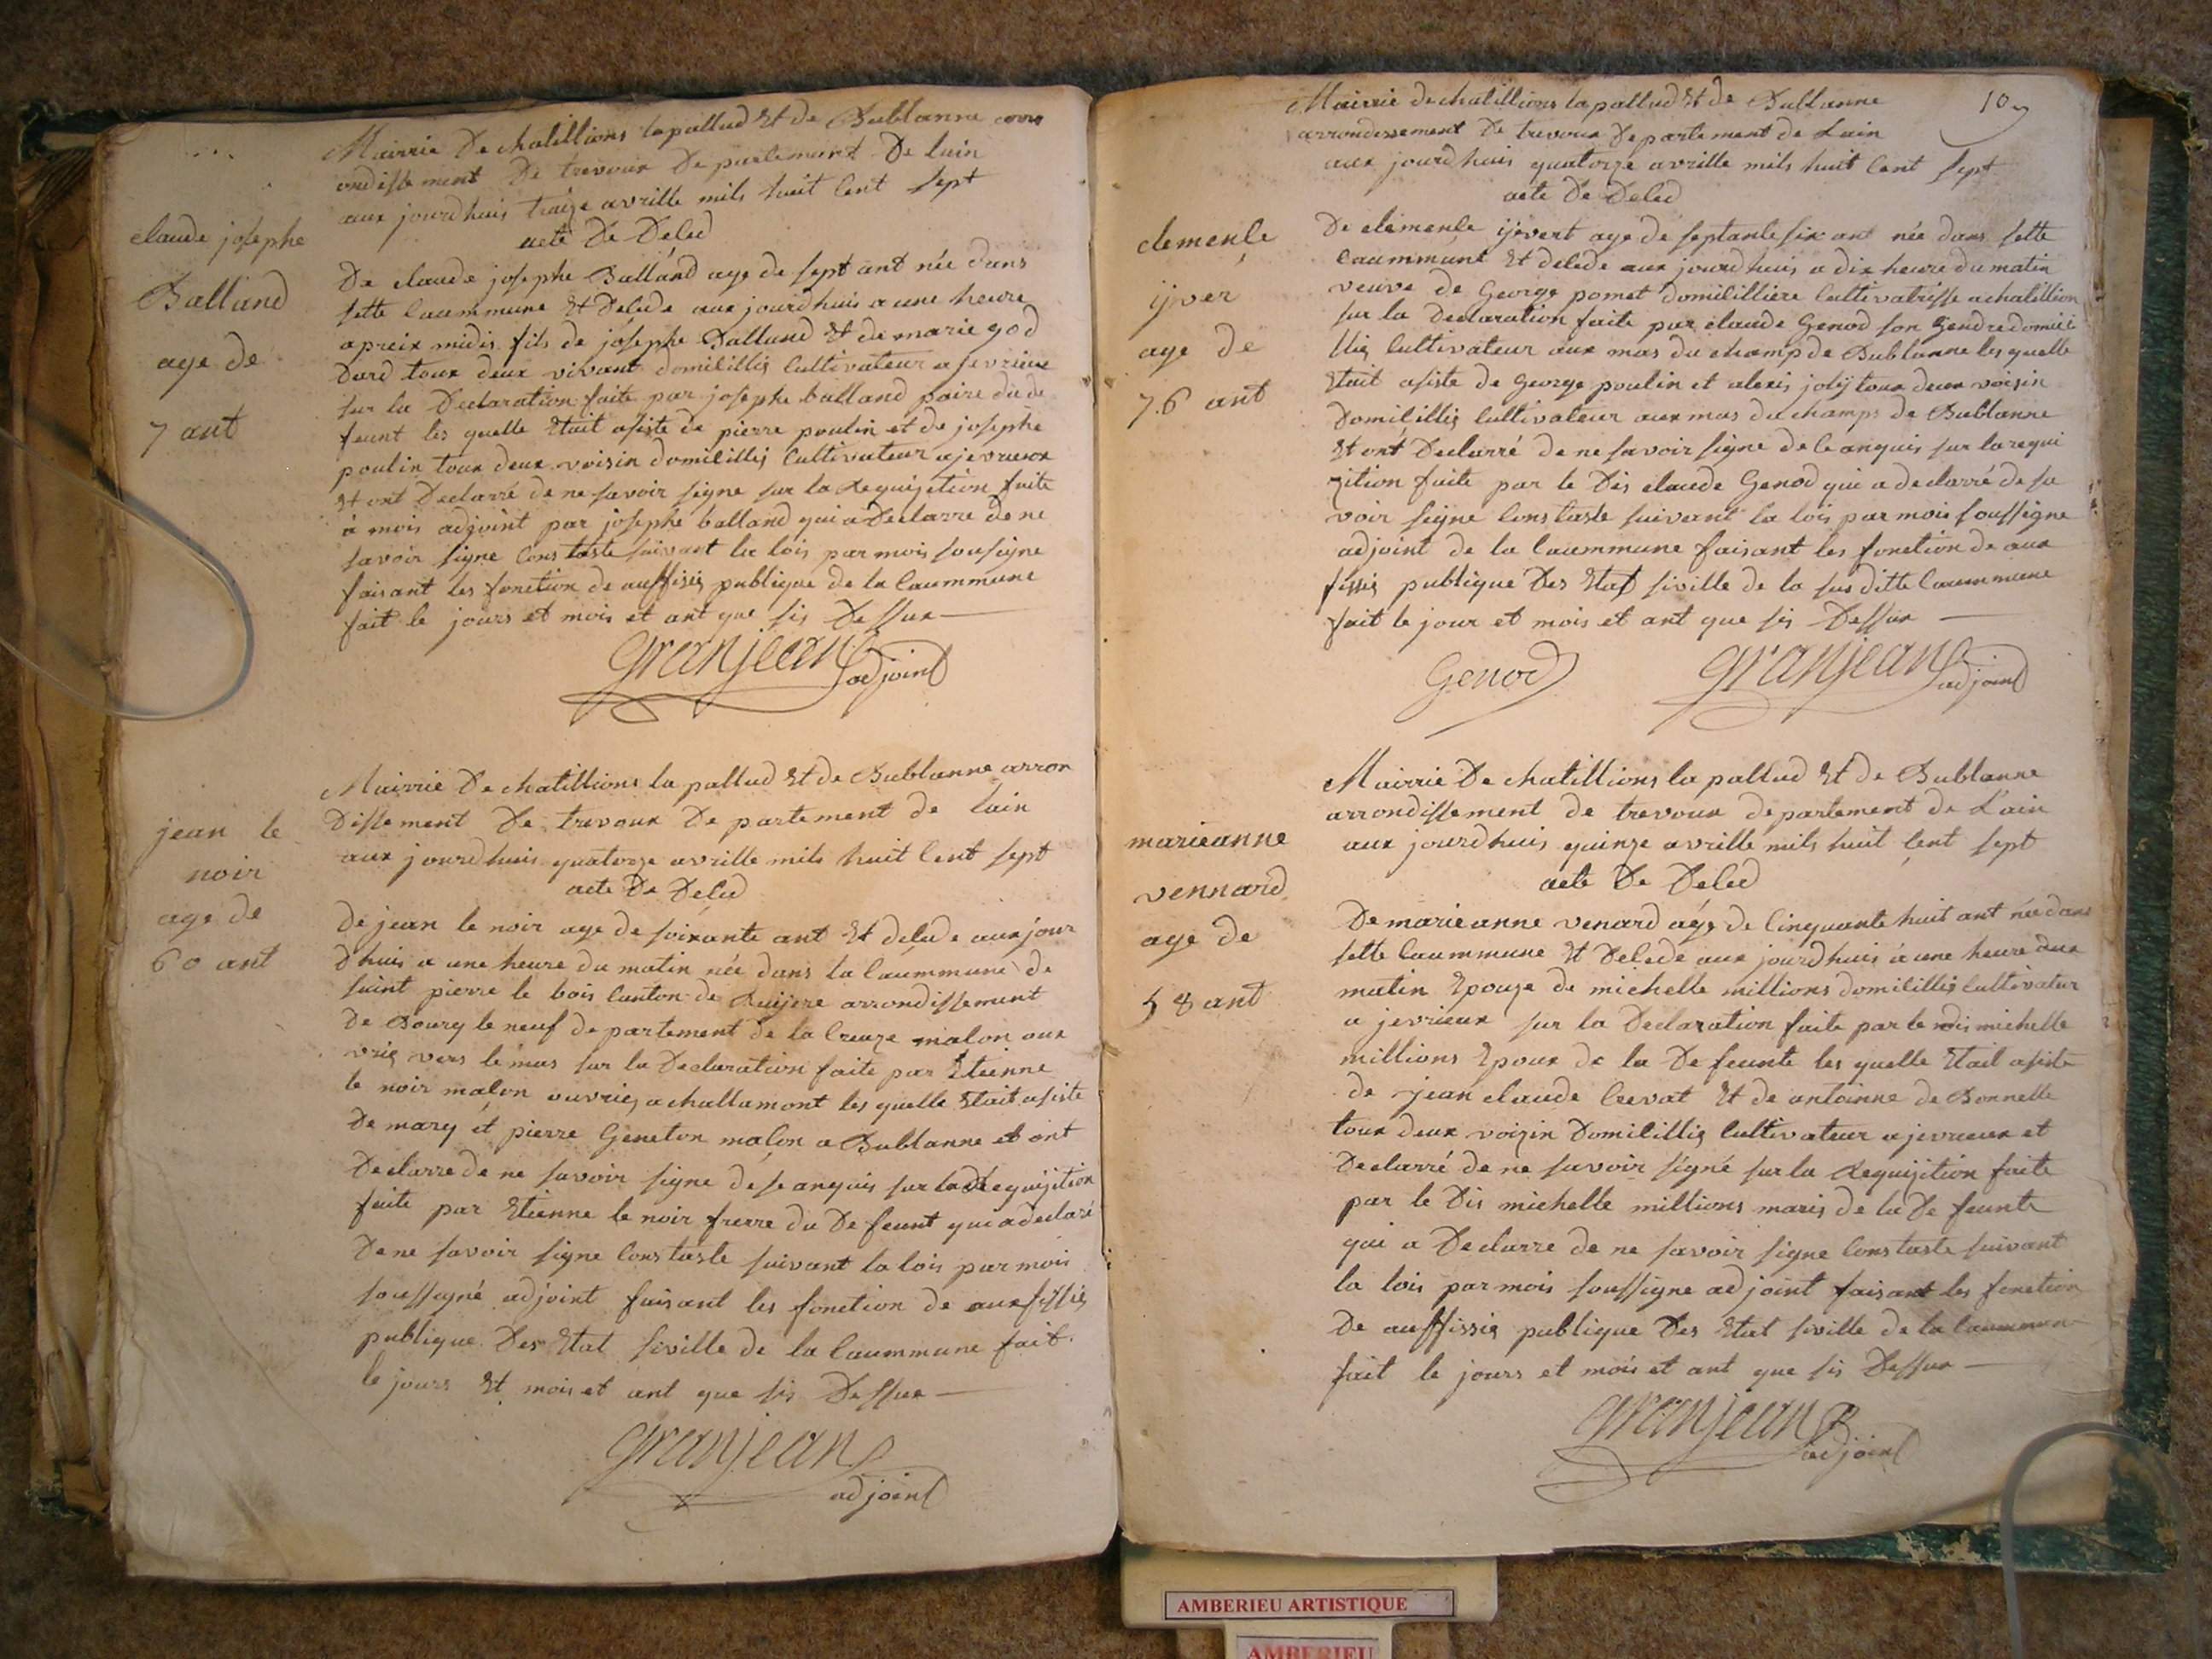 Mairrie De chatillions la pallud Et de Bublanne arr
ondissement De trevoux Departement De lain
aux jourdhuis traize avrille mils huit Cent sept
acte De Deléd
claude josephe
Balland
age de
7 ant
De claude josephe Balland age de sept ant née dans
sette Caummune Et Deléde aux jourdhuis a une heure
apreix midis fils de josephe Balland Et de marie god
dard toux deux vivant domicillig Cultivateur a jevrieux
sur la Declaration faite par josephe balland paire du de
feunt les quelle Etait asiste de pierre poulin et de josephe
poulin toux deux voisin domicillig Cultivateur a jevrieux
Et ont Declarré de ne savoir signe sur la Requijition faite
à mois adjoint par josephe balland qui a Declarre de ne
savoir signe Constaste suivant la lois par mois sousigne
faisant les fonction de auffisig publique de la Caummune
fait le jours et mois et ant que sis Dessux
granjean adjoint
Mairrie De chatillions la pallud Et de Bublanne arron
Dissement De trevoux Departement de lain
aux jourdhuis quatorze avrille mils huit Cent sept
acte De Deléd
jean le
noir
age de
60 ant
De jean le noir age de soixante ant Et deléde aux jour
dhuis a une heure du matin née dans la Caummune de
saint pierre le bois Canton de
De Bourg le neuf departement de la Creuze malon oux
vrig vers le mas sur la Declaration faite par Etienne
le noir malon ouvrig a challamont les quelle Etait asiste
De mary et pierre Geneton malon a Bublanne et ont
Declarre de ne savoir signe de se anquis sur la Requijition
faite par Etienne le noir frerre du De feunt qui a declaré
De ne savoir signe Constaste suivant la lois par mois
soussigné adjoint faisant les fonction de auxfissig
publique Des Etat siville de la Caummune fait
le jours Et mois et ant que sis Dessux
granjean
adjoint
10
Mairrie de chatillions la pallud Et de Bublanne
arrondissement De trevoux Departement de Lain
aux jourdhuis quatorze avrille mils huit Cent sept
acte De Deled
clemenle
ijver
age de
76 ant
De clemenle ijvert age de septante six ant née dans sette
Caummune Et deléde aux jourdhuis a dix heure du matin
veuve de George pomet domicilliere Cultivatrisse a chatillion
sur la Declaration faite par claude Genod son Gendre domici
llig Cultivateur aux mas du champ de Bublanne les quelle
Etait asiste de George poulin et alexis jolij toux deux voisin
Domicillig Cultivateur aux mas du champs de Bublanne
Et ont Declarré de ne savoir signe de Ce anquis sur la requi
zition faite par le Dis claude Genod qui a declarré de sa
voir signe Constaste suivant la lois par mois soussigne
adjoint de la Caummune faisant les fonction de aux
fissig publique Des Etat siville de la sus ditte Caummune
fait le jour et mois et ant que sis Dessux
Genod granjean adjoint
Mairrie De chatillions la pallud Et de Bublanne
arrondissement de trevoux departement de L'ain
aux jourdhuis quinze avrille mils huit Cent sept
acte De Deléd
marieanne
vennard
age de
58 ant
De marieanne venard age de Cinquante huit ant née dans
sette Caummune Et Deléde aux jourdhuis à une heure dux
matin Epouze de michelle millions domicillig Cultivatur
a jevrieux sur la Declaration faite par le dis michelle
millions Epoux de la De feunte les quelle Etait asiste
de jean claude Crevat Et de antoinne de Bonnelle
toux deux voizin Domicillig Cultivateur a jevrieux et
Declarré de ne savoir signé sur la Requijition faite
par le Dis michelle millions maris de la De feunte
qui a Declarre de ne savoir signe Constaste suivant
la lois par mois soussigne adjoint faisant les fonction
De auffissig publique Des Etat siville de la Caummun
fait le jours et mois et ant que sis Dessux
granjean
adjoint
AMBERIEU ARTISTIQUE
AMBERIEU